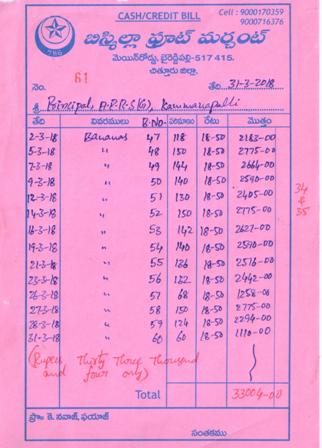 CASH/CREDIT BILL
Cell : 9000170359
9000716376
786
బిస్మిల్లా ఫ్రూట్ మర్చంట్
మెయిన్‌రోడ్డు, బైరెడ్డిపల్లి-517 415.
చిత్తూరు జిల్లా.
నెం. 61 తేది 31-3-2018
శ్రీ Principal, A.P.R.S(G), Kammanapalli
తేది వివరములు B.No పరిమాణం రేటు మొత్తం
2-3-18 Bananas 47 118 18-50 2183-00
5-3-18 " 48 150 18-50 2775-00
7-3-18 " 49 144 18-50 2664-00
9-3-18 " 50 140 18-50 2590-00
12-3-18 " 51 130 18-50 2405-00
14-3-18 " 52 150 18-50 2775-00
16-3-18 " 53 142 18-50 2627-00
19-3-18 " 54 140 18-50 2590-00
21-3-18 " 55 136 18-50 2516-00
23-3-18 " 56 132 18-50 2442-00
26-3-18 " 57 68 18-50 1258-00
27-3-18 " 58 150 18-50 2775-00
28-3-18 " 59 124 18-50 2294-00
31-3-18 " 60 60 18-50 1110-00
34 & 35
(Rupees Thirty Three thousand
and four only)
Total 33004-00
ప్రొ: కె. నవాజ్, ఫయాజ్
సంతకము